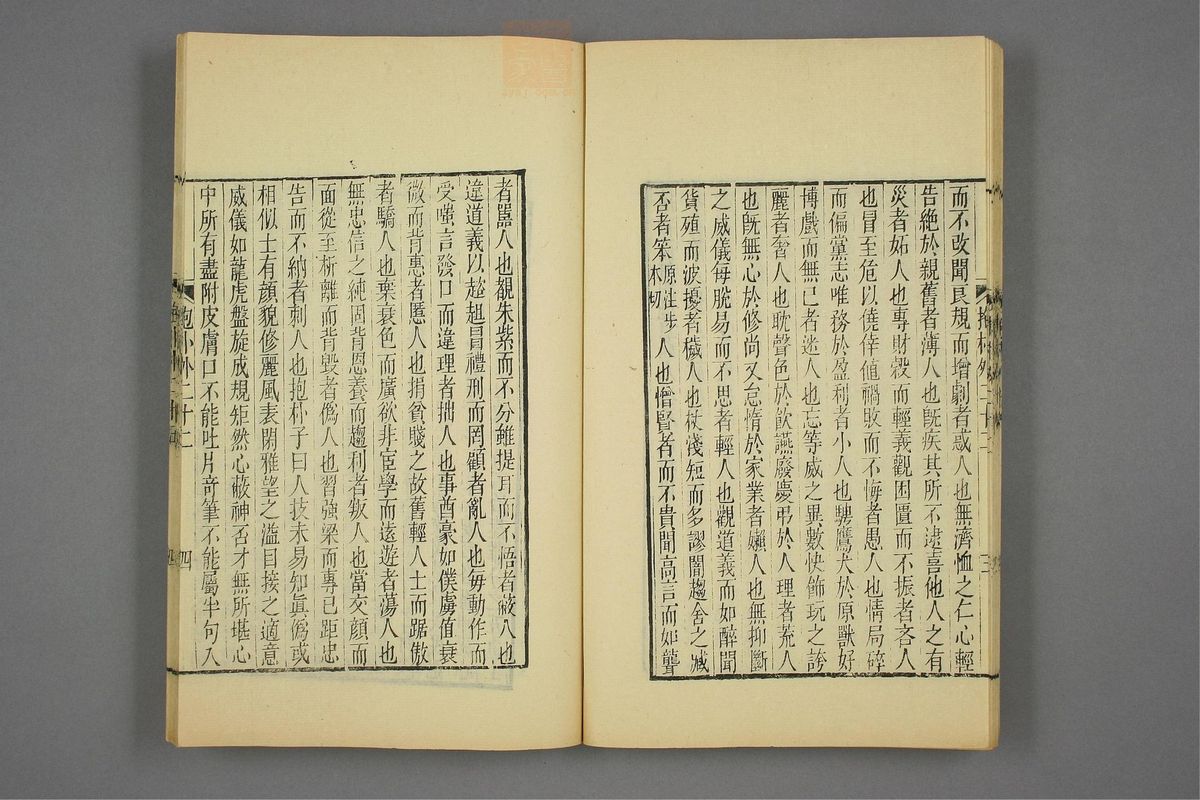 而不改聞良規而增劇者惑人也無濟恤之仁心輕
告絕於親舊者薄人也旣疾其所不逮喜他人之有
災者妬人也專財穀而輕義觀困匱而不振者吝人
也冒至危以僥倖値禍敗而不悔者愚人也情局碎
而偏黨志唯務於盈利者小人也騁鷹犬於原獸好
博戲而無已者迷人也忘等威之異數快飾玩之誇
麗者奢人也耽聲色於飮讌廢慶弔於人理者荒人
也旣無心於修尚又怠惰於家業者嬾人也無抑斷
之威儀每脫易而不思者輕人也觀道義而如醉聞
貨殖而波擾者穢人也杖淺短而多謬闇趨舍之臧
否者笨原注步本切人也憎賢者而不貴聞高言而如聾
者嚚人也覩朱紫而不分雖提耳而不悟者蔽人也
違道義以趑趄冒禮刑而罔顧者亂人也每動作而
受嗤言發口而違理者拙人也事酋豪如僕虜值衰
微而背惠者慝人也捐貧賤之故舊輕人士而踞傲
者驕人也棄衰色而廣欲非宦學而遠遊者蕩人也
無忠信之純固背恩養而趨利者叛人也當交顏而
面從至析離而背毀者僞人也習強梁而專己距忠
告而不納者刺人也抱朴子曰人技未易知眞僞或
相似士有顏貌修麗風表閑雅望之溢目接之適意
威儀如龍虎盤旋成規矩然心蔽神否才無所堪心
中所有盡附皮膚口不能吐片奇筆不能屬半句入
抱朴外二十二
四